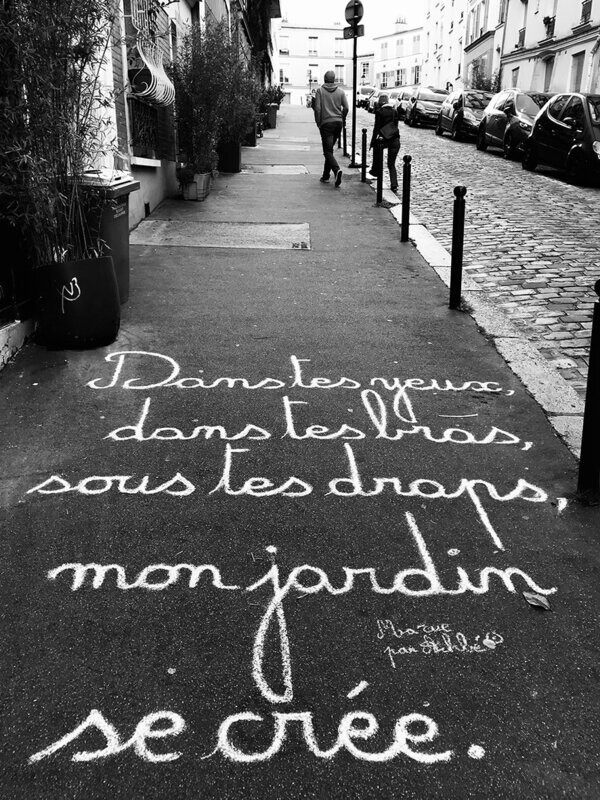 Dans tes yeux,
dans tes bras,
sous tes draps,
mon jardin
se crée.
Ma rue
par Achbé